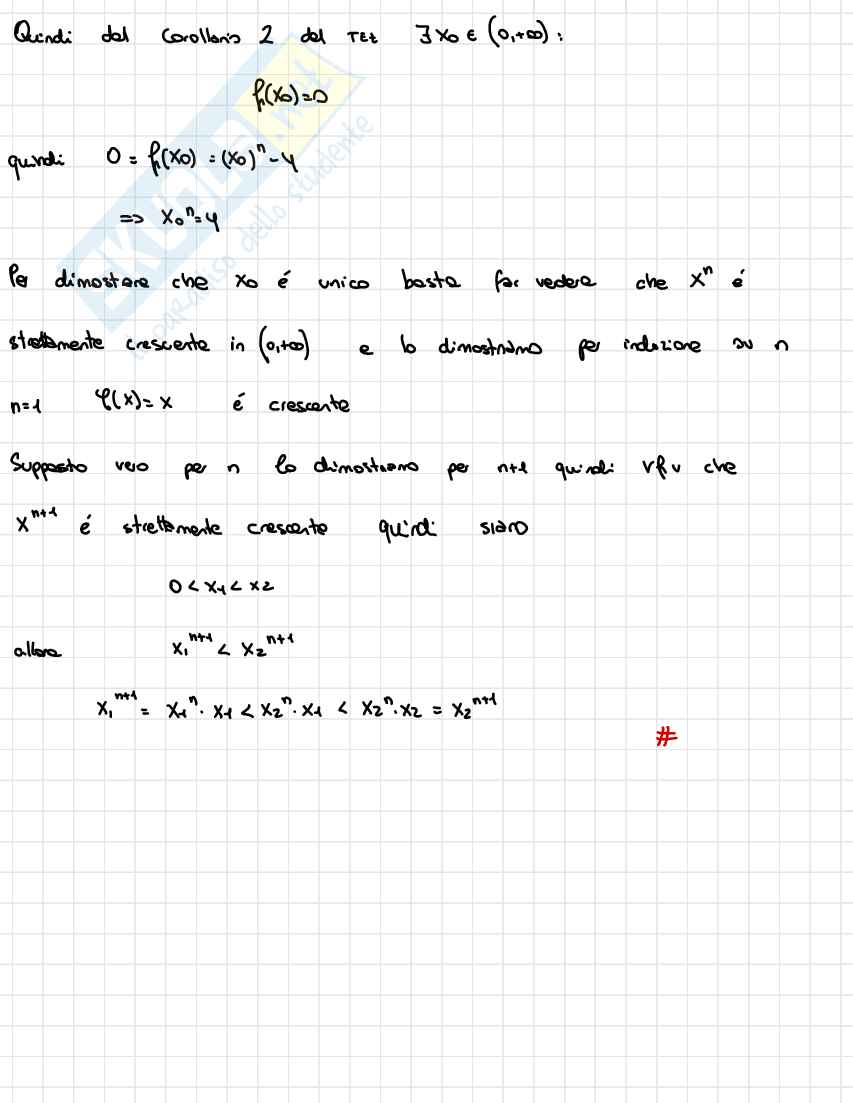 Quindi dal Corollario 2 del TEZ ∃ x₀ ∈ (0,+∞) :
f(x₀)=0
quindi 0 = f(x₀) = (x₀)ⁿ - y
=> x₀ⁿ = y
Per dimostrare che x₀ é unico basta far vedere che xⁿ é
strettamente crescente in (0,+∞) e lo dimostriamo per induzione su n
n=1 φ(x)=x é crescente
Supposto vero per n lo dimostriamo per n+1 quindi vfv che
xⁿ⁺¹ é strettamente crescente quindi siano
0 < x₁ < x₂
allora x₁ⁿ⁺¹ < x₂ⁿ⁺¹
x₁ⁿ⁺¹ = x₁ⁿ · x₁ < x₂ⁿ · x₁ < x₂ⁿ · x₂ = x₂ⁿ⁺¹
#
SKUOLA.net
il paradiso dello studente